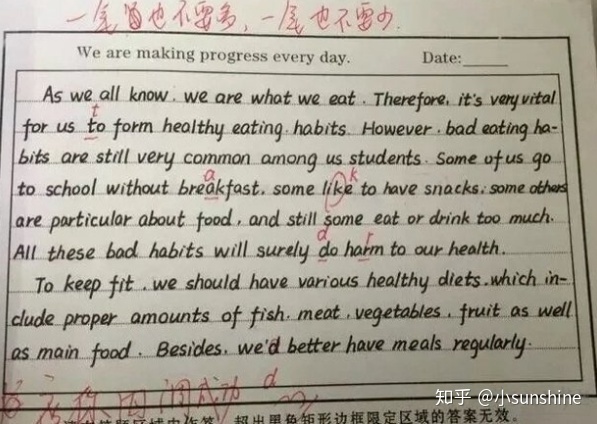 一 也不要多，一 也不要少.
We are making progress every day. Date:_____
As we all know, we are what we eat. Therefore, it's very vital
t
for us to form healthy eating habits. However, bad eating ha-
bits are still very common among us students. Some of us go
a k
to school without breakfast, some like to have snacks, some others
are particular about food, and still some eat or drink too much.
d r
All these bad habits will surely do harm to our health.
To keep fit, we should have various healthy diets, which in-
clude proper amounts of fish, meat, vegetables, fruit as well
as main food. Besides, we'd better have meals regularly.
d
知乎 @小sunshine
答题区域内作答，超出黑色矩形边框限定区域的答案无效。